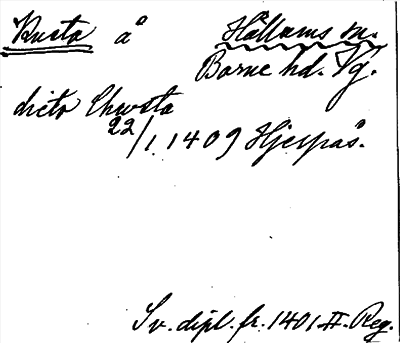 Kusta å Hällums sn.
Barne hd. Vg.
dicto Chwsta
22/1. 1409 Hjerpås.
Sv. dipl. fr. 1401 II. Reg.